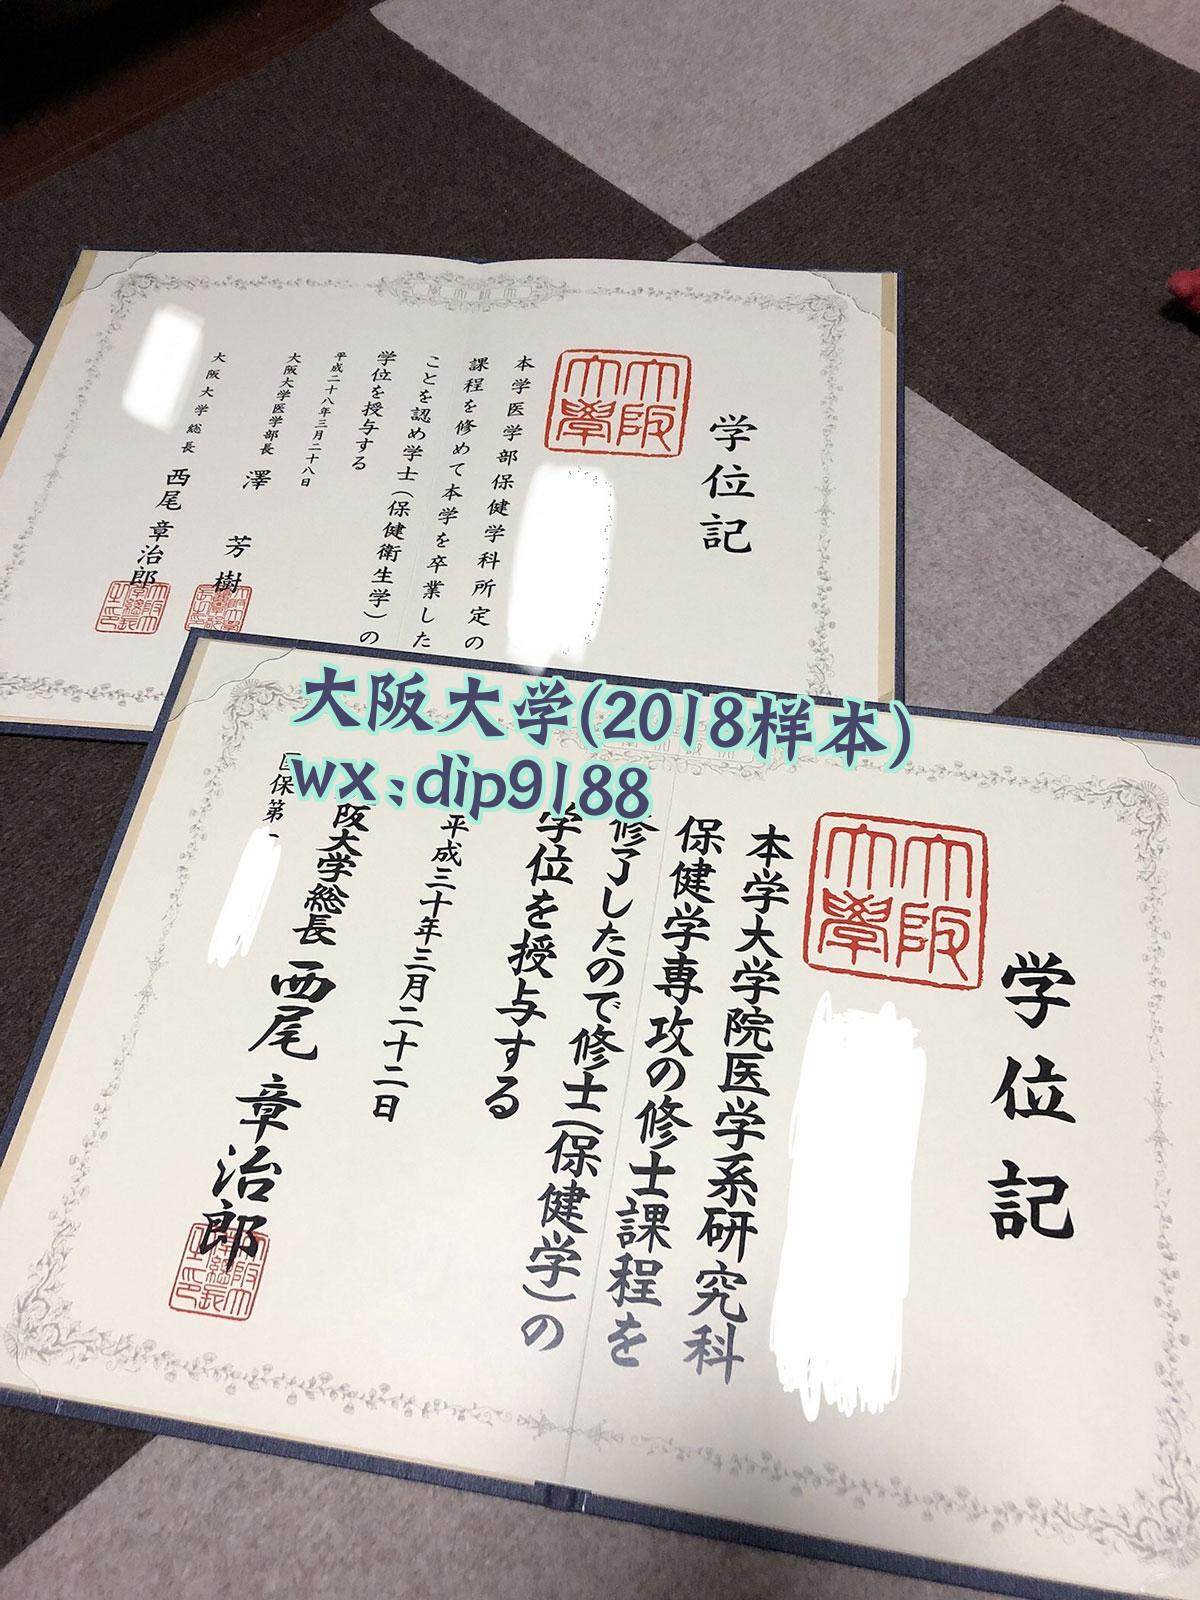 学位記
大阪
大學
本学医学部保健学科所定の
課程を修めて本学を卒業した
ことを認め学士（保健衛生学）の
学位を授与する
平成二十八年三月二十八日
大阪大学医学部長 澤 芳樹
大阪大学総長 西尾章治郎
大阪大学(2018样本)
wx:dip9188
学位記
大阪
大學
本学大学院医学系研究科
保健学専攻の修士課程を
修了したので修士（保健学）の
学位を授与する
平成三十年三月二十二日
阪大学総長 西尾章治郎
医保第